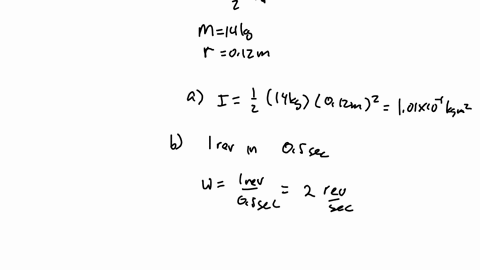 2
m=14kg
r=0.12m
a) I = 1/2 (14kg)(0.12m)² = 1.01×10⁻¹ kgm²
b) 1 rev in 0.5sec
W = 1rev/0.5sec = 2 rev/sec